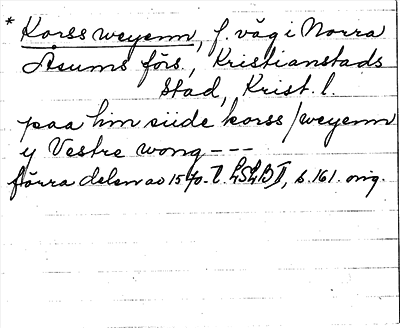 * Korssweyenn, f. väg i Norra
Åsums förs., Kristianstads
stad, Krist. l.
paa hin siide korss/weyenn
y Vestre wong ---
förra delen av 1570-t. LSLB II, s. 161. orig.